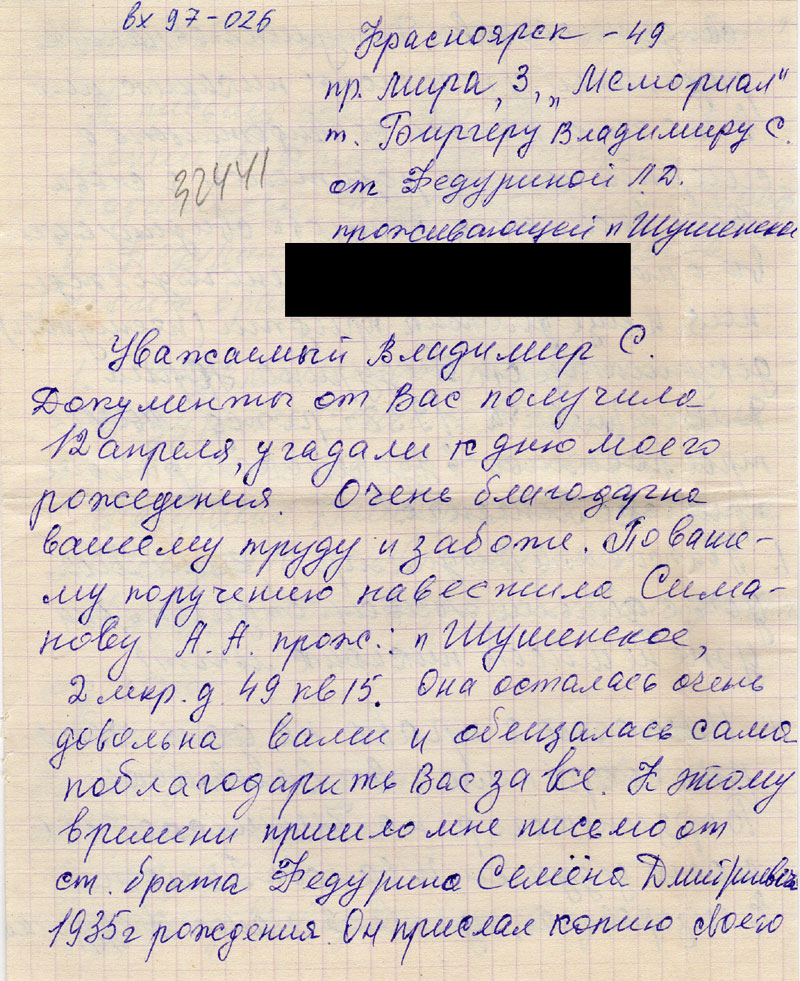 вх 97-026
Красноярск - 49
пр. Мира, 3, „Мемориал"
т. Биргеру Владимиру С.
32441
от Федуриной Л.Д.
проживающей п Шушенское
Уважаемый Владимир С.
Документы от Вас получила
12 апреля, угадали к дню моего
рождения. Очень благодарна
вашему труду и заботе. По ваше-
му поручению навестила Сима-
нову А. А. прож.: п Шушенское,
2 мкр. д. 49 кв 15. Она осталась очень
довольна вами и обещалась сама
поблагодарить Вас за все. К этому
времени пришло мне письмо от
ст. брата Федурина Семёна Дмитриевича
1935 г рождения. Он прислал копию своего